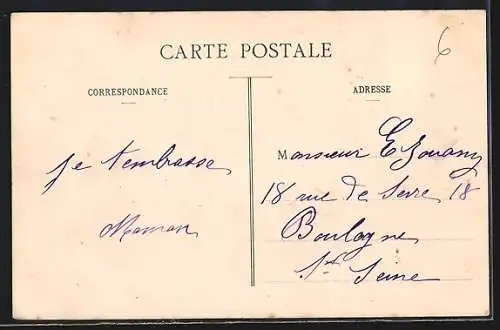 CARTE POSTALE
6
CORRESPONDANCE
ADRESSE
je t'embrasse
Maman
Monsieur E Zouany
18 rue de Serre 18
Boulogne
s/ Seine